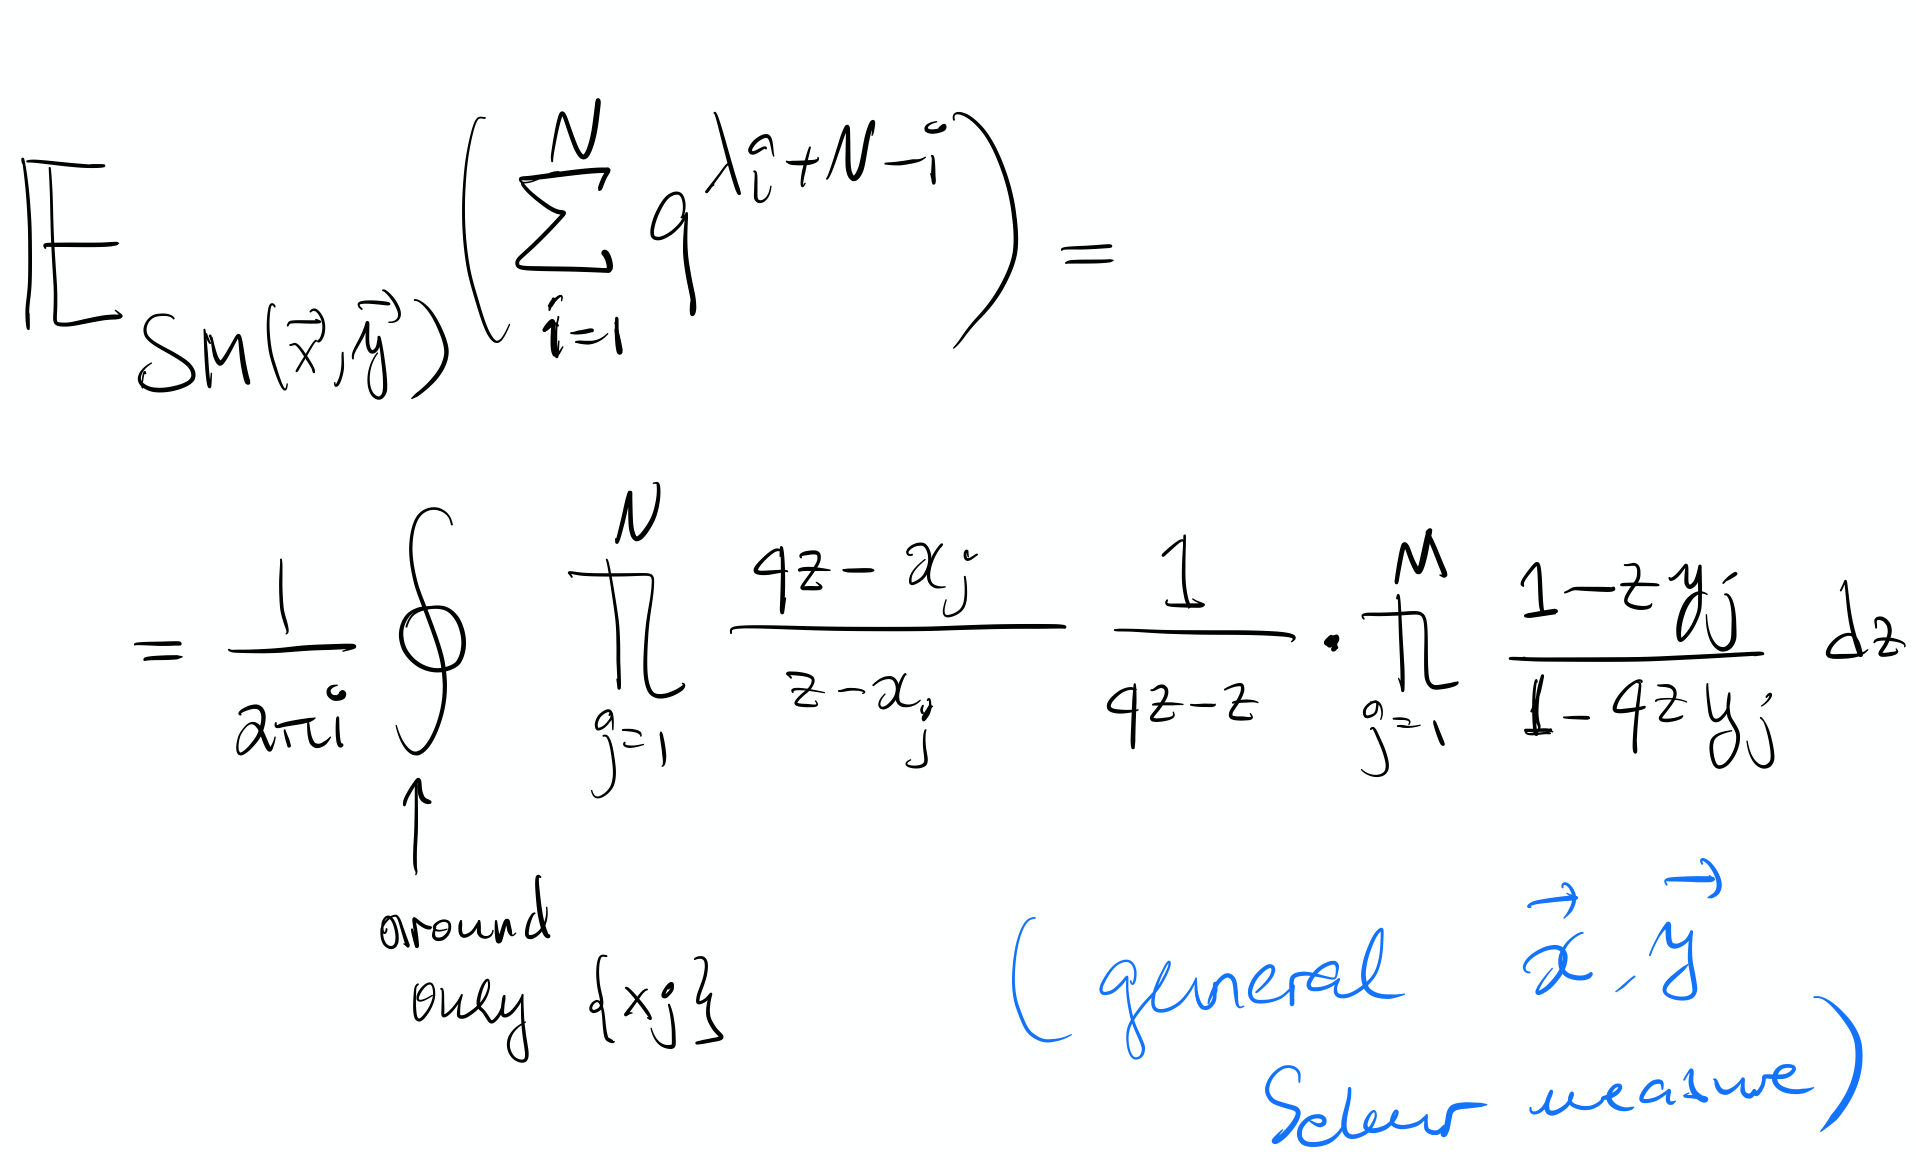 𝔼_{SM(\vec{x}, \vec{y})} ( \sum_{i=1}^{N} q^{λ_i + N - i} ) =
= \frac{1}{2πi} \oint \prod_{j=1}^{N} \frac{qz - x_j}{z - x_j} \frac{1}{qz - z} · \prod_{j=1}^{M} \frac{1 - z y_j}{1 - q z y_j} dz
↑
around
only {xj}
(general \vec{x}, \vec{y}
Schur measure)